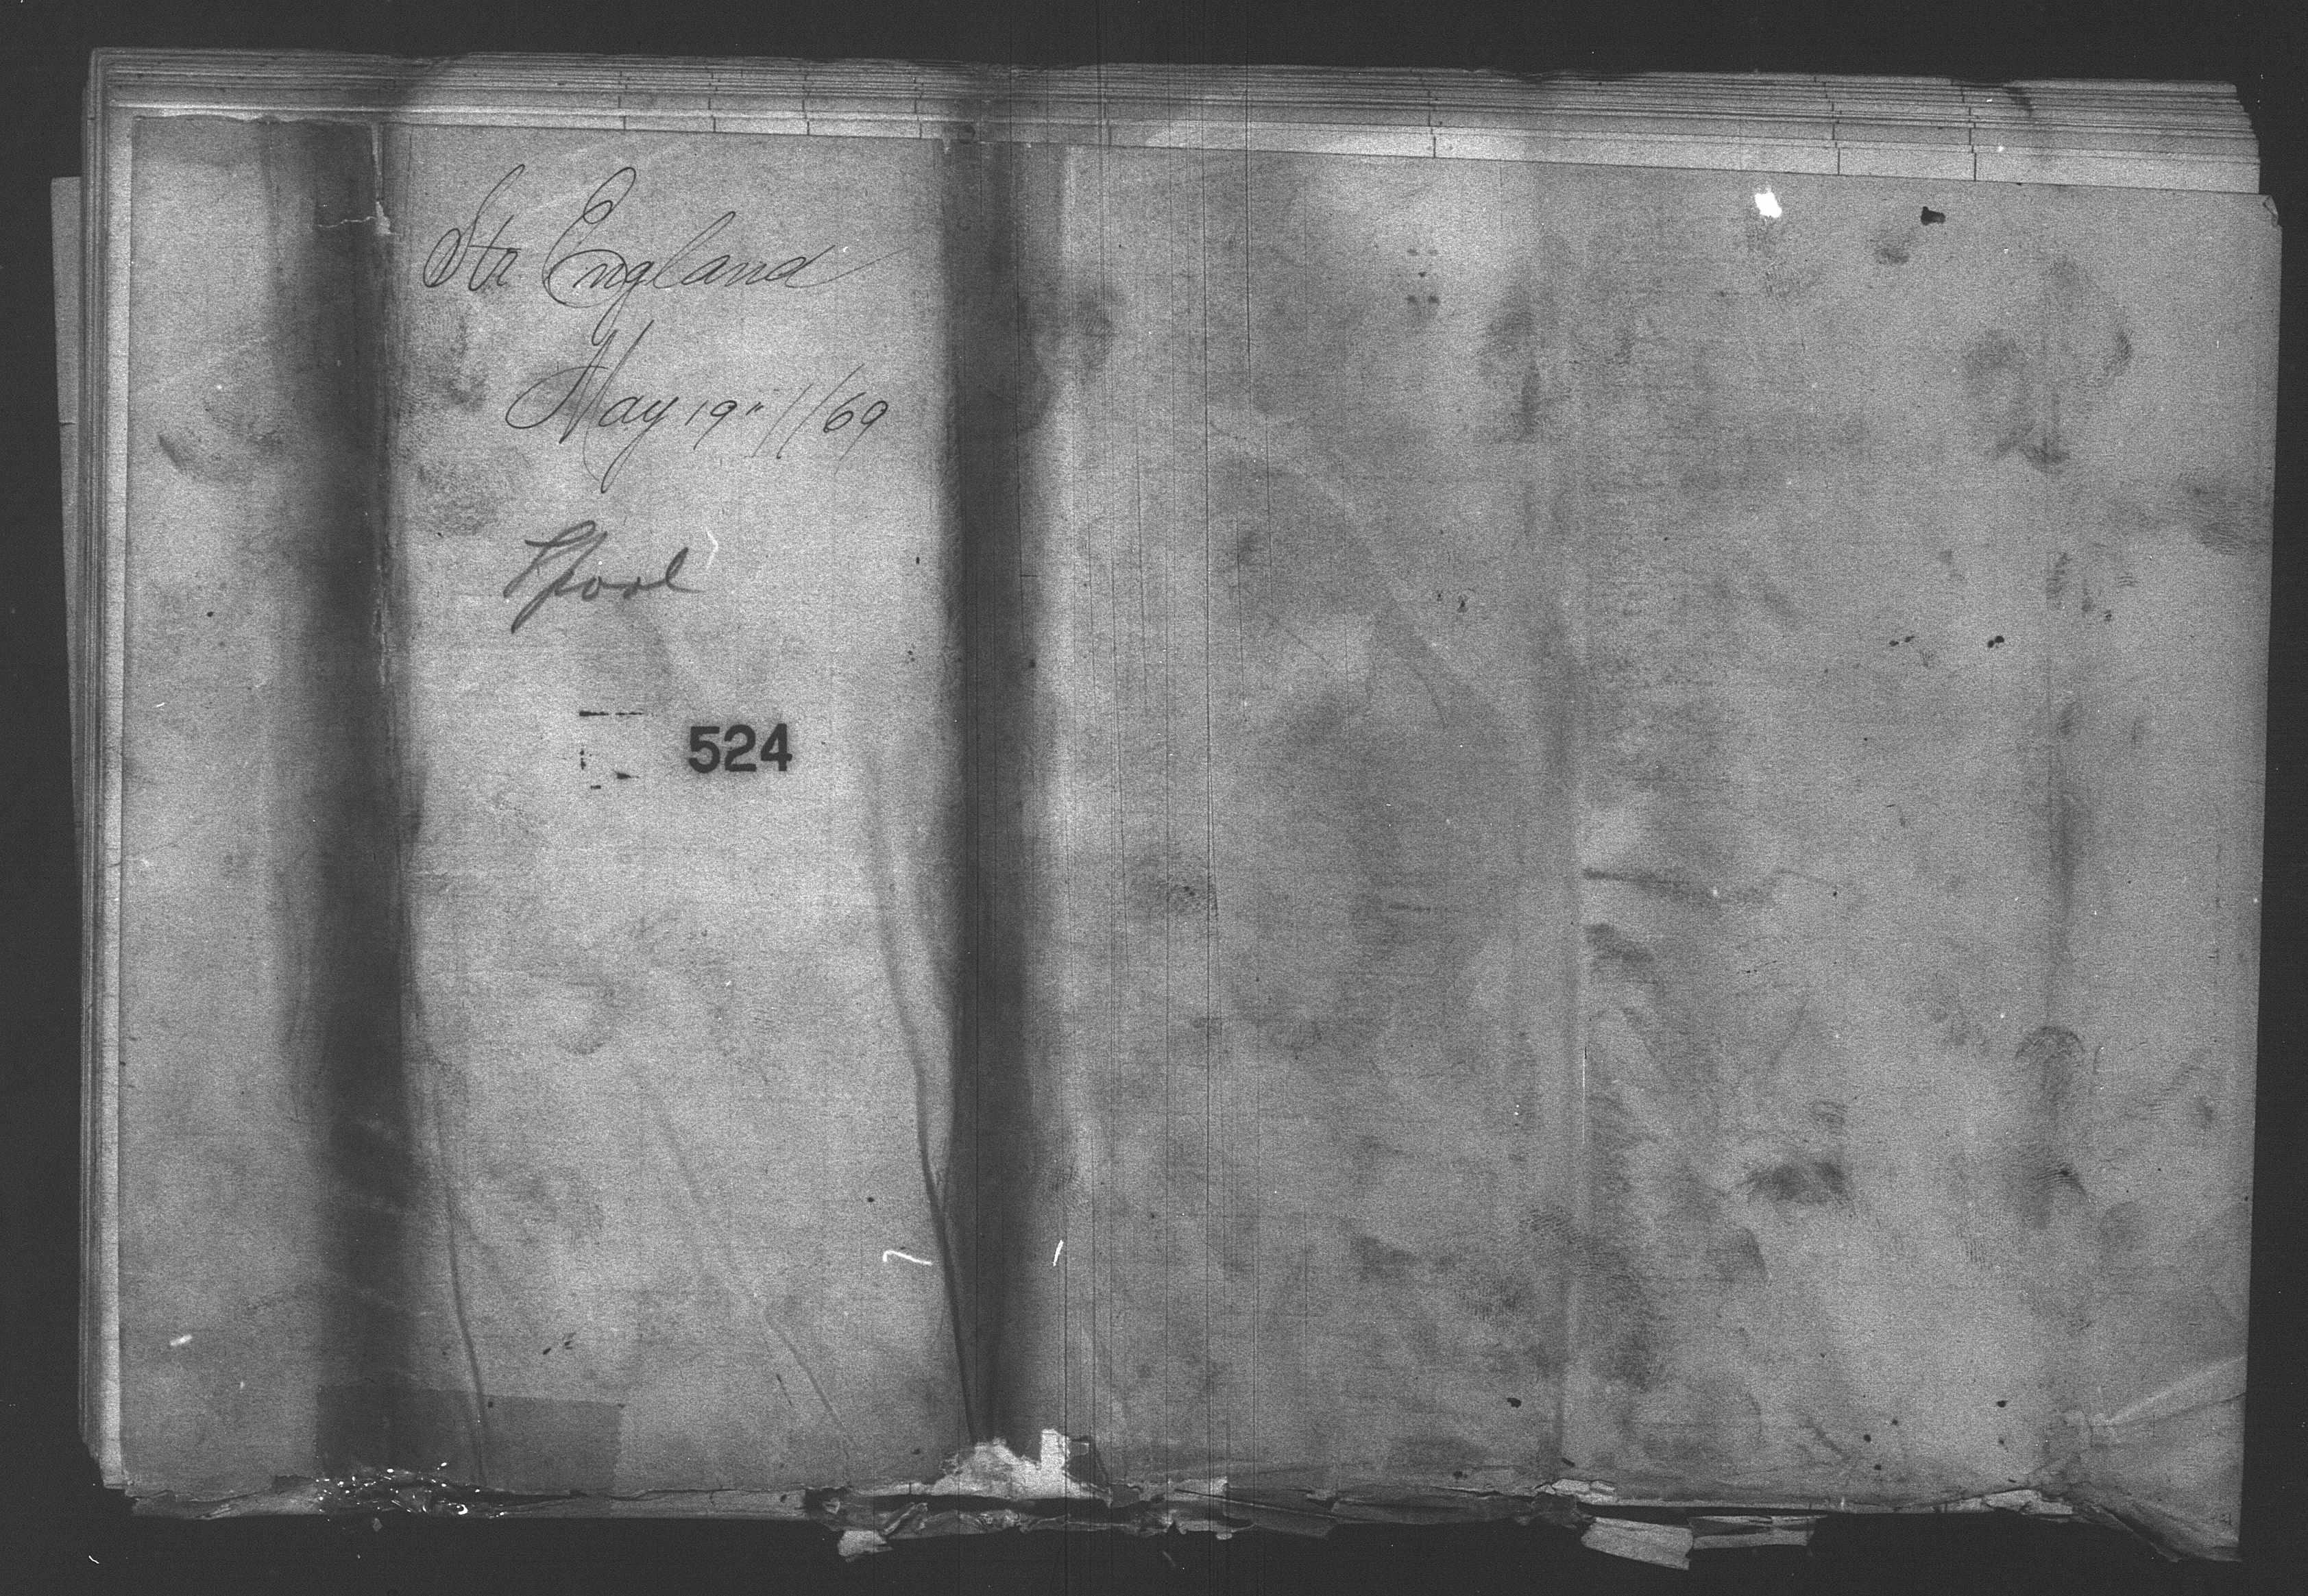 Str. England
May 19" //69
Lpool
524